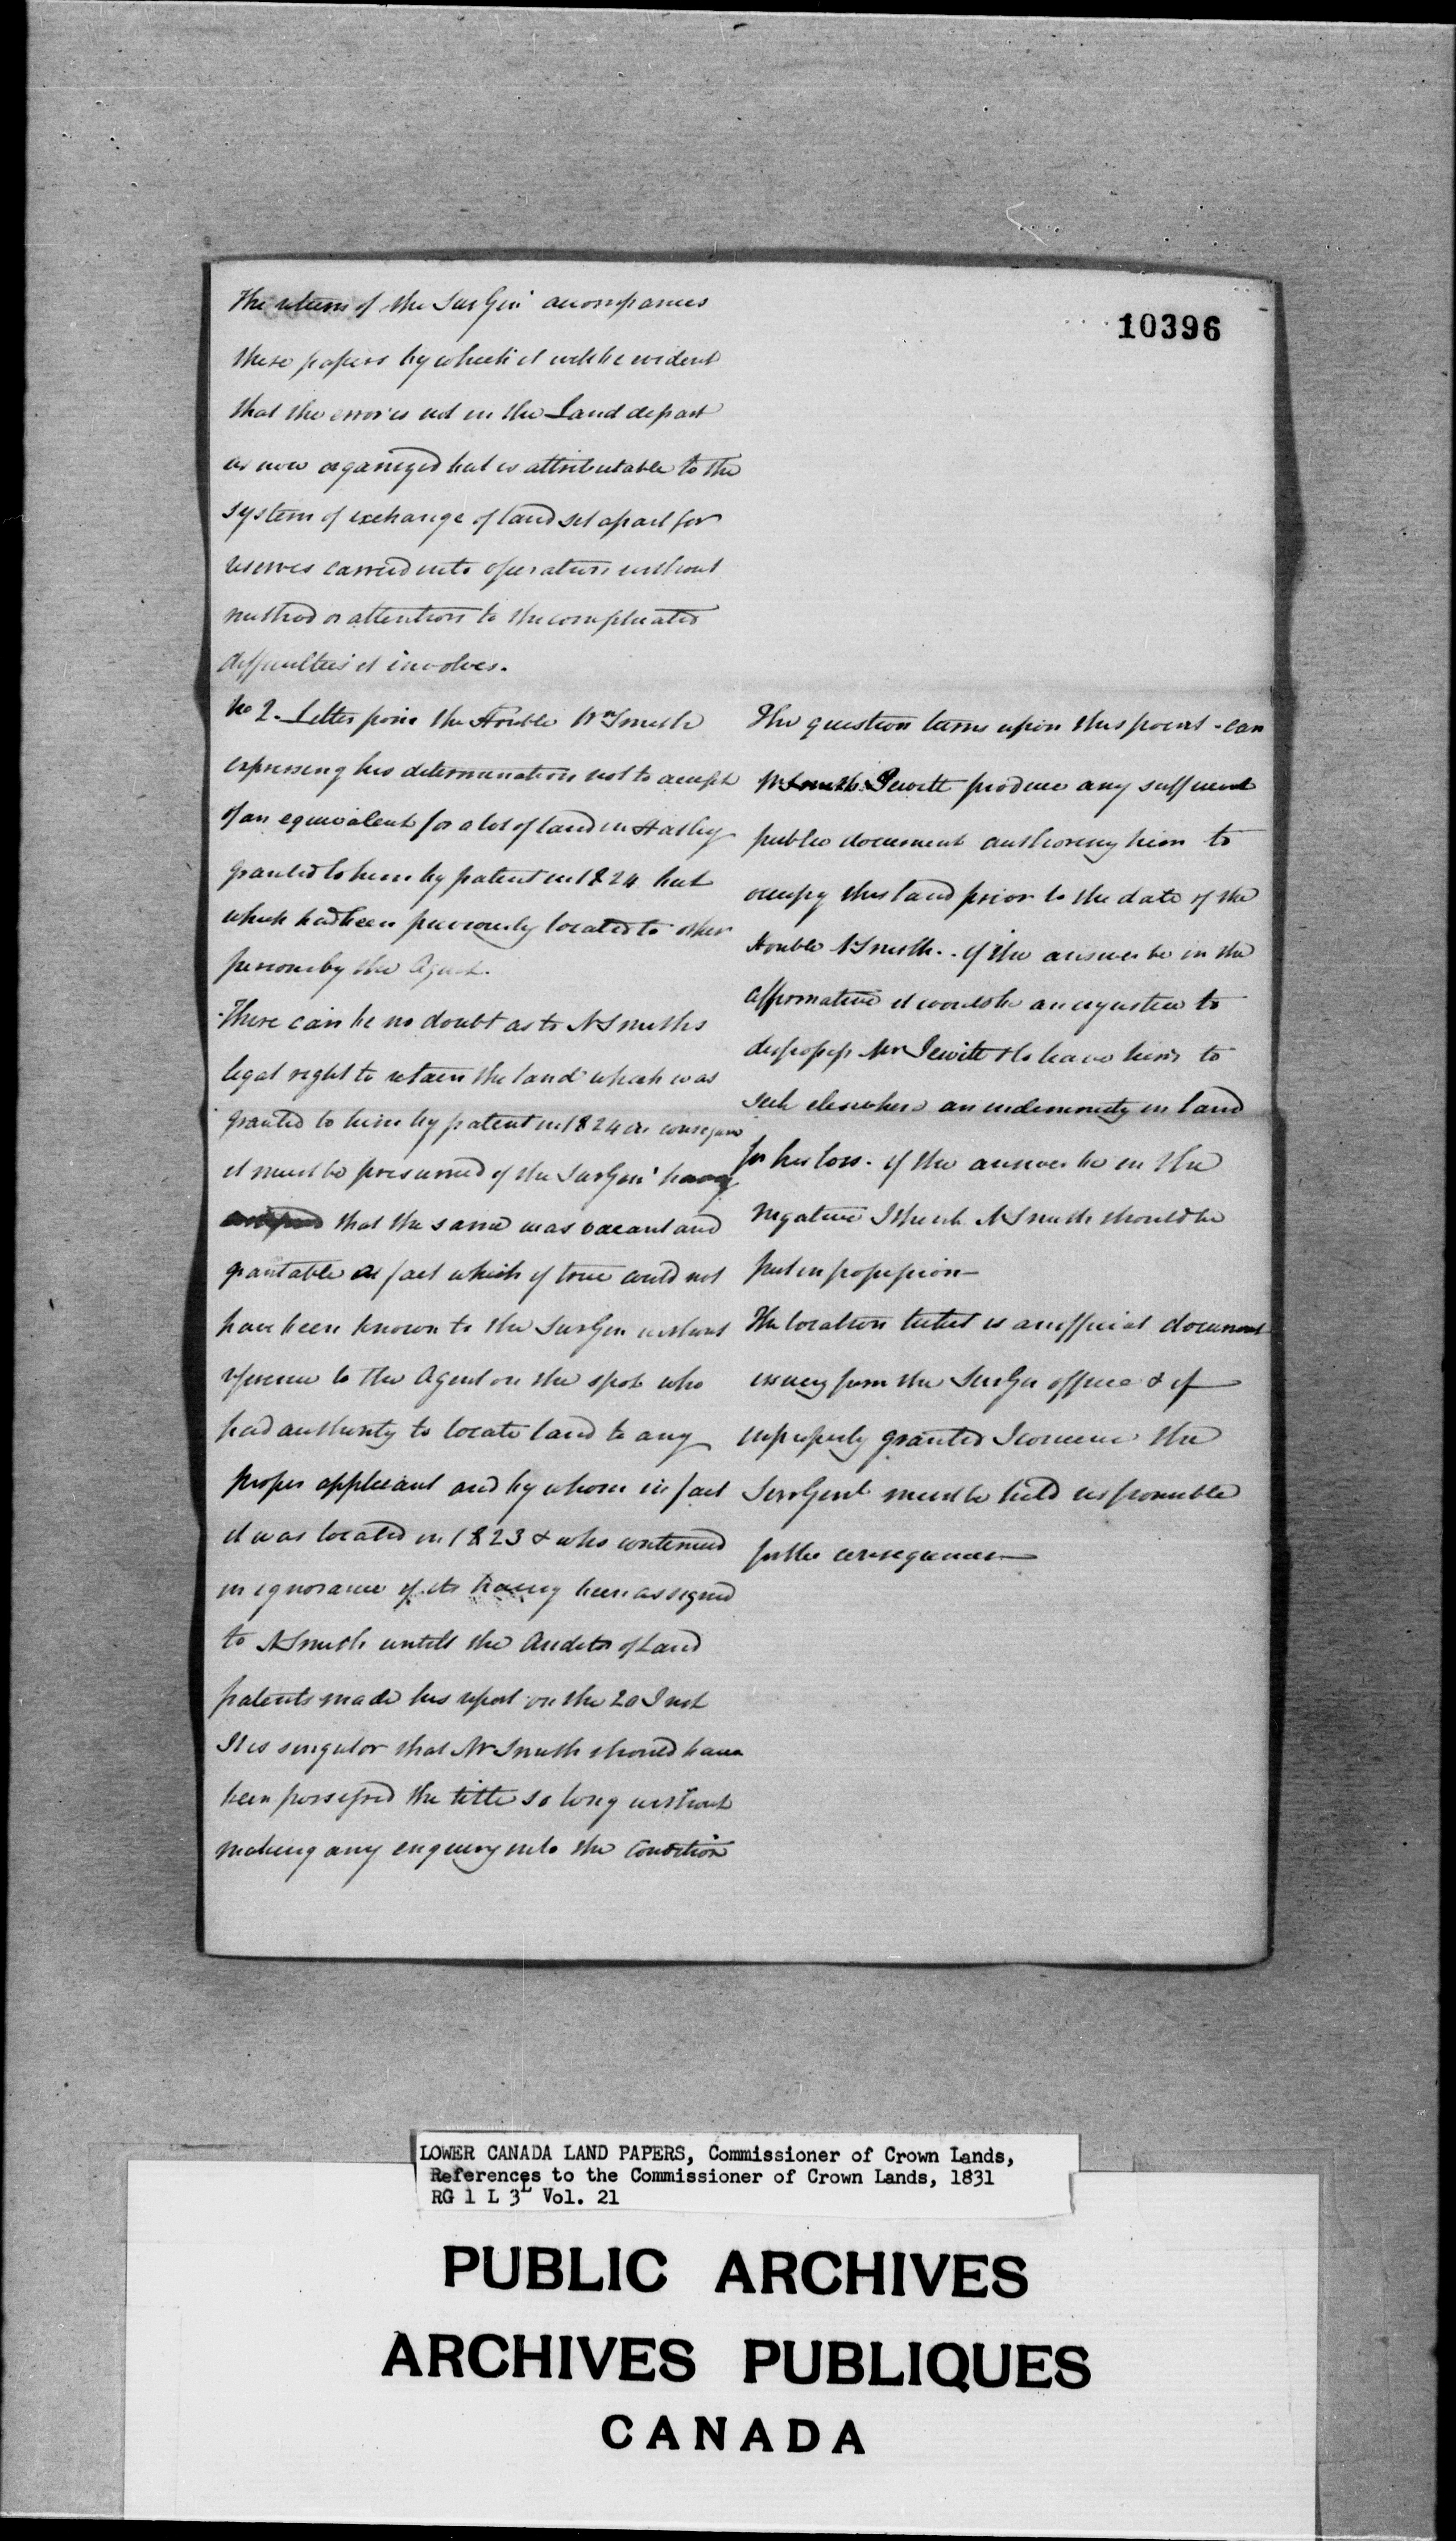 10396
The return of the Sur Gen accompanies
these papers by which it will be evident
that the error is not in the Land depart
as now organized but is attributable to the
system of exchange of land set apart for
reserves carried into operation without
method or attention to the complicated
difficulties it involves.
No 2. Letter from the Honble Wm Smith
expressing his determination not to accept
of an equivalent for a lot of land in Hatley
granted to him by patent in 1824 but
which had been previously located to other
persons by the Agent.
There can be no doubt as to Mr Smiths
legal right to retain the land which was
granted to him by patent in 1824 in
it must be presumed of the Sur Gen having
that the same was vacant and
grantable a fact which if true could not
have been known to the Sur Gen without
reference to the Agent on the spot who
had authority to locate land to any
proper applicant and by whom in fact
it was located in 1823 & who continued
in ignorance of its having been assigned
to Mr Smith untill the Auditor of Land
patents made his report on the 20 Inst
It is singular that Mr Smith should have
been possessed the title so long without
making any enquiry into the Condition
The question turns upon this point - can
Jewett produce any sufficient
public document authorising him to
occupy this land prior to the date of the
Honble Mr Smith. . if the answer be in the
affirmative it would be an injustice to
dispossess Mr Jewitt & to leave him to
seek elsewhere an indemnity in land
for his loss. if the answer be in the
negative I think Mr Smith should be
put in possession
The location ticket is an official document
issuing from the Sur Gen office & if
improperly granted I conceive the
Sur Genl must be held responsible
for the consequences
LOWER CANADA LAND PAPERS, Commissioner of Crown Lands,
References to the Commissioner of Crown Lands, 1831
RG 1 L 3L Vol. 21
PUBLIC ARCHIVES
ARCHIVES PUBLIQUES
CANADA